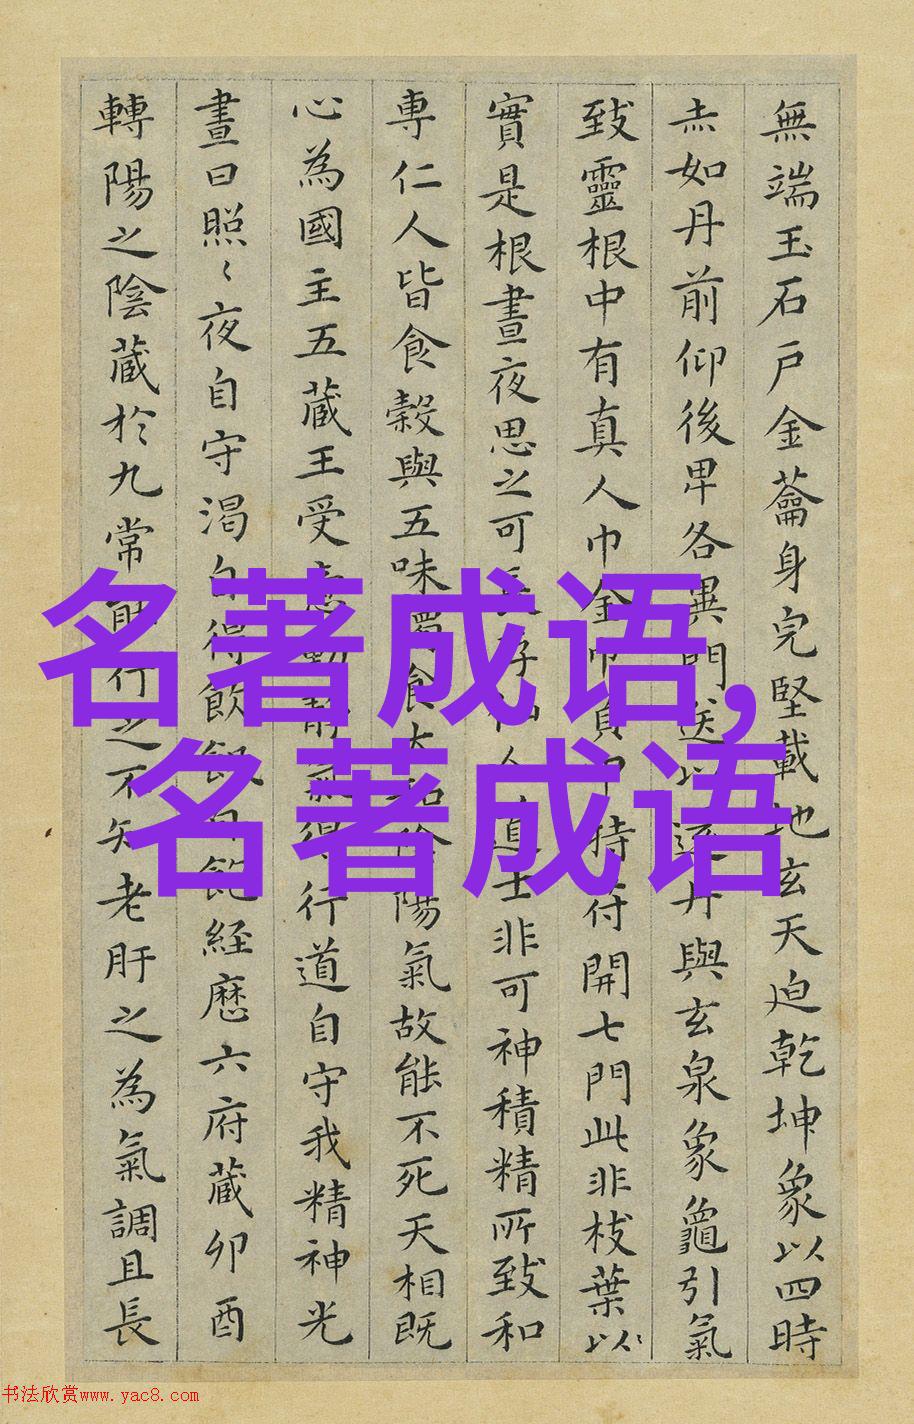 無端玉石戶金籥身完堅載地玄天迫乾坤象以四時
赤如丹前仰後卑各異門送以還丹與玄泉象龜引氣
致靈根中有真人巾金巾負甲持符開七門此非枝葉以
實是根晝夜思之可長存仙人道士非可神積精所致和
專仁人皆食穀與五味獨食太和陰陽氣故能不死天相既
心為國主五藏王受意動靜氣得行道自守我精神光
晝日照〻夜自守渴自得飲飢自飽經歷六府藏卯酉
轉陽之陰藏於九常能行之不知老肝之為氣調且長
名著成语,
名著成语
书法欣赏www.yac8.com